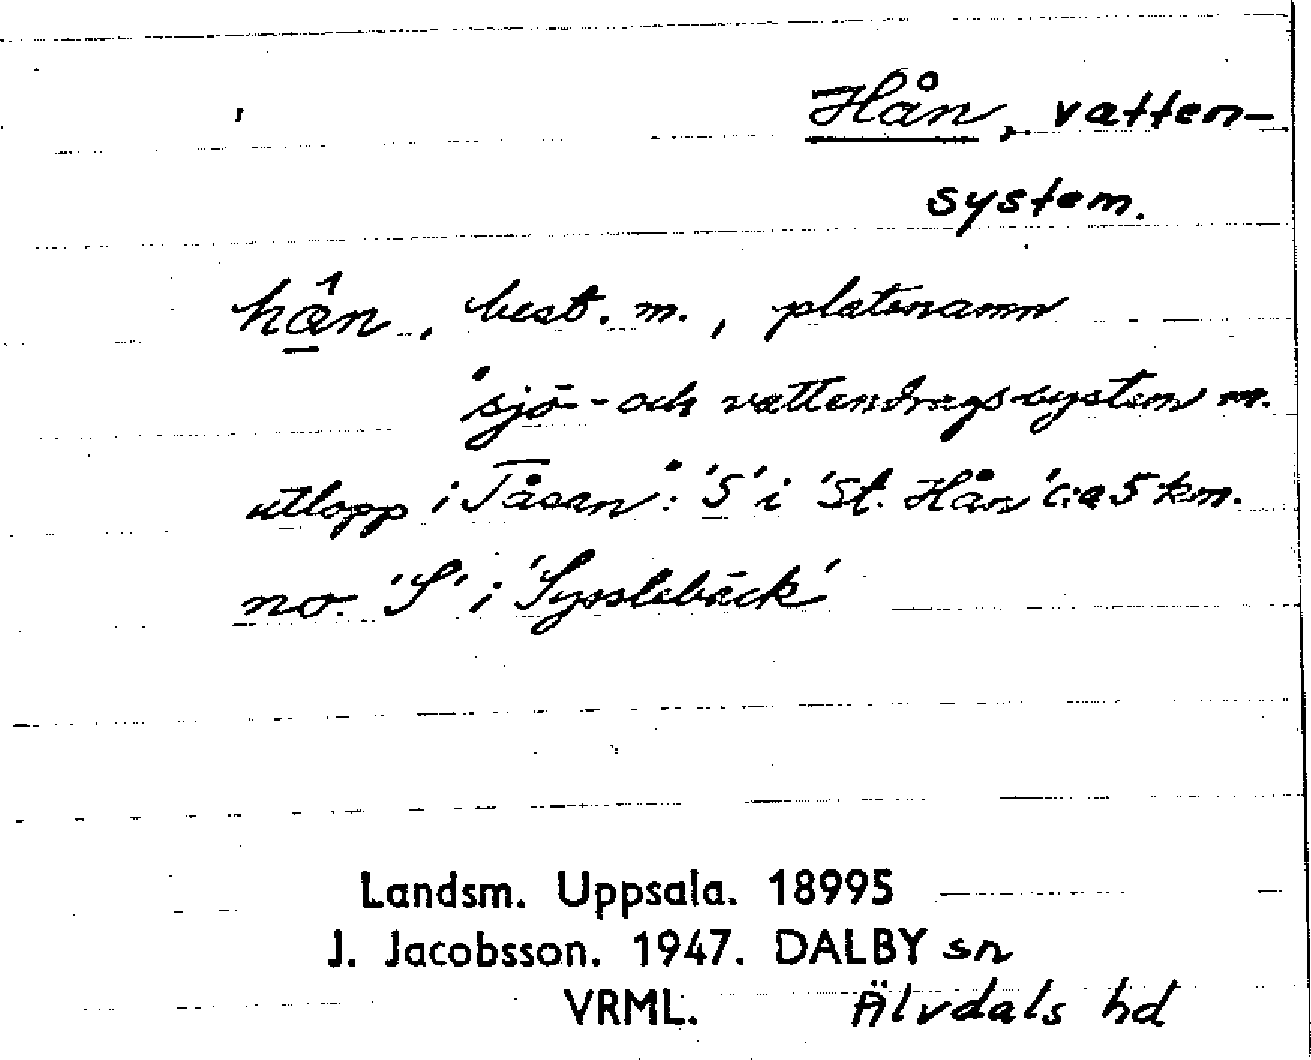 Hån, vatten-
system.
hân, best. m., platsnamn
"sjö- och vattendragssystem m.
utlopp i Tåsan": 'S' i 'St. Hån' c:a 5 km.
no. 'S' i 'Sysslebäck'
Landsm. Uppsala. 18995
J. Jacobsson. 1947. DALBY sn
VRML. Älvdals hd